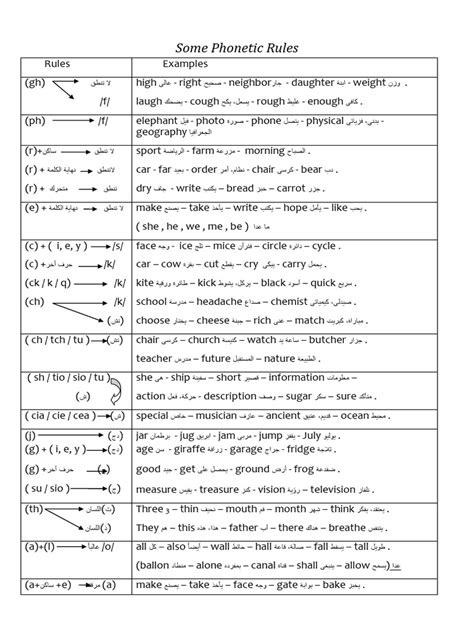 Some Phonetic Rules
Rules Examples
(gh) لا تنطق high عالى - right صحيح - neighbor جار - daughter ابنة - weight وزن .
/f/ laugh يضحك - cough يسعل، يكح - rough غليظ - enough كافى .
(ph) /f/ elephant فيل - photo صوره - phone يتصل - physical بدني، فزيائى -
geography الجغرافيا
(r)+ساكن لا تنطق sport الرياضة - farm مزرعة - morning الصباح .
(r) + نهاية الكلمة لا تنطق car - far بعيد - order نظام، أمر - chair كرسى - bear دب .
(r) + متحرك تنطق dry جاف - write يكتب – bread خبز – carrot جزر .
(e) + نهاية الكلمة لا تنطق make يصنع – take يأخذ – write يكتب – hope يأمل – like يحب .
( she , he , we , me , be ) ما عدا
(c) + ( i, e, y ) /s/ face وجه - ice ثلج – mice فئران – circle دائره – cycle .
(c) + حرف آخر /k/ car – cow بقرة – cut يقطع – cry يبكى – carry يحمل .
(ck / k / q) /k/ kite طائرة ورقية – kick يركل، يشوط – black أسود – quick سريع .
(ch) /k/ school مدرسة – headache صداع – chemist صيدلى، كيميائى .
(تش) choose يختار – cheese جبنة – rich غنى – match مباراة، كبريت .
( ch / tch / tu ) (تش) chair كرسى – church كنيسة – watch ساعة يد – butcher جزار .
teacher مدرس – future المستقبل – nature الطبيعة .
( sh / tio / sio / tu ) she هى - ship سفينة – short قصير – information معلومات –
(ش) action حركة، فعل - description وصف – sugar سكر – sure متأكد .
( cia / cie / cea ) (ش) special خاص – musician عازف – ancient قديم، عتيق – ocean محيط .
(j) jar برطمان - jug ابريق - jam مربى - jump يقفز - July يوليو .
(g) + ( i, e, y ) age سن - giraffe زرافة - garage جراج - fridge ثلاجة .
(g) + حرف آخر good جيد - get يحصل على - ground أرض - frog ضفدعة .
( su / sio ) (ج) measure يقيس – treasure كنز – vision رؤية – television تلفاز .
(th) (ث)اللسان Three 3 – thin نحيف – mouth فم – month شهر – think يفكر .
(ذ)اللسان They هم – this هذا، هذه – father أب – there هناك – breathe يتنفس .
(a)+(l) غالباً /o/ all كل – also أيضاً – wall حائط – hall صالة، قاعة – fall يسقط – tall طويل .
(ballon منطاد – alone بمفرده – canal قناة – shall سوف – allow يسمح) عدا
(a+ساكن +e) (a) make يصنع – take يأخذ – face وجه – gate بوابة – bake يخبز .